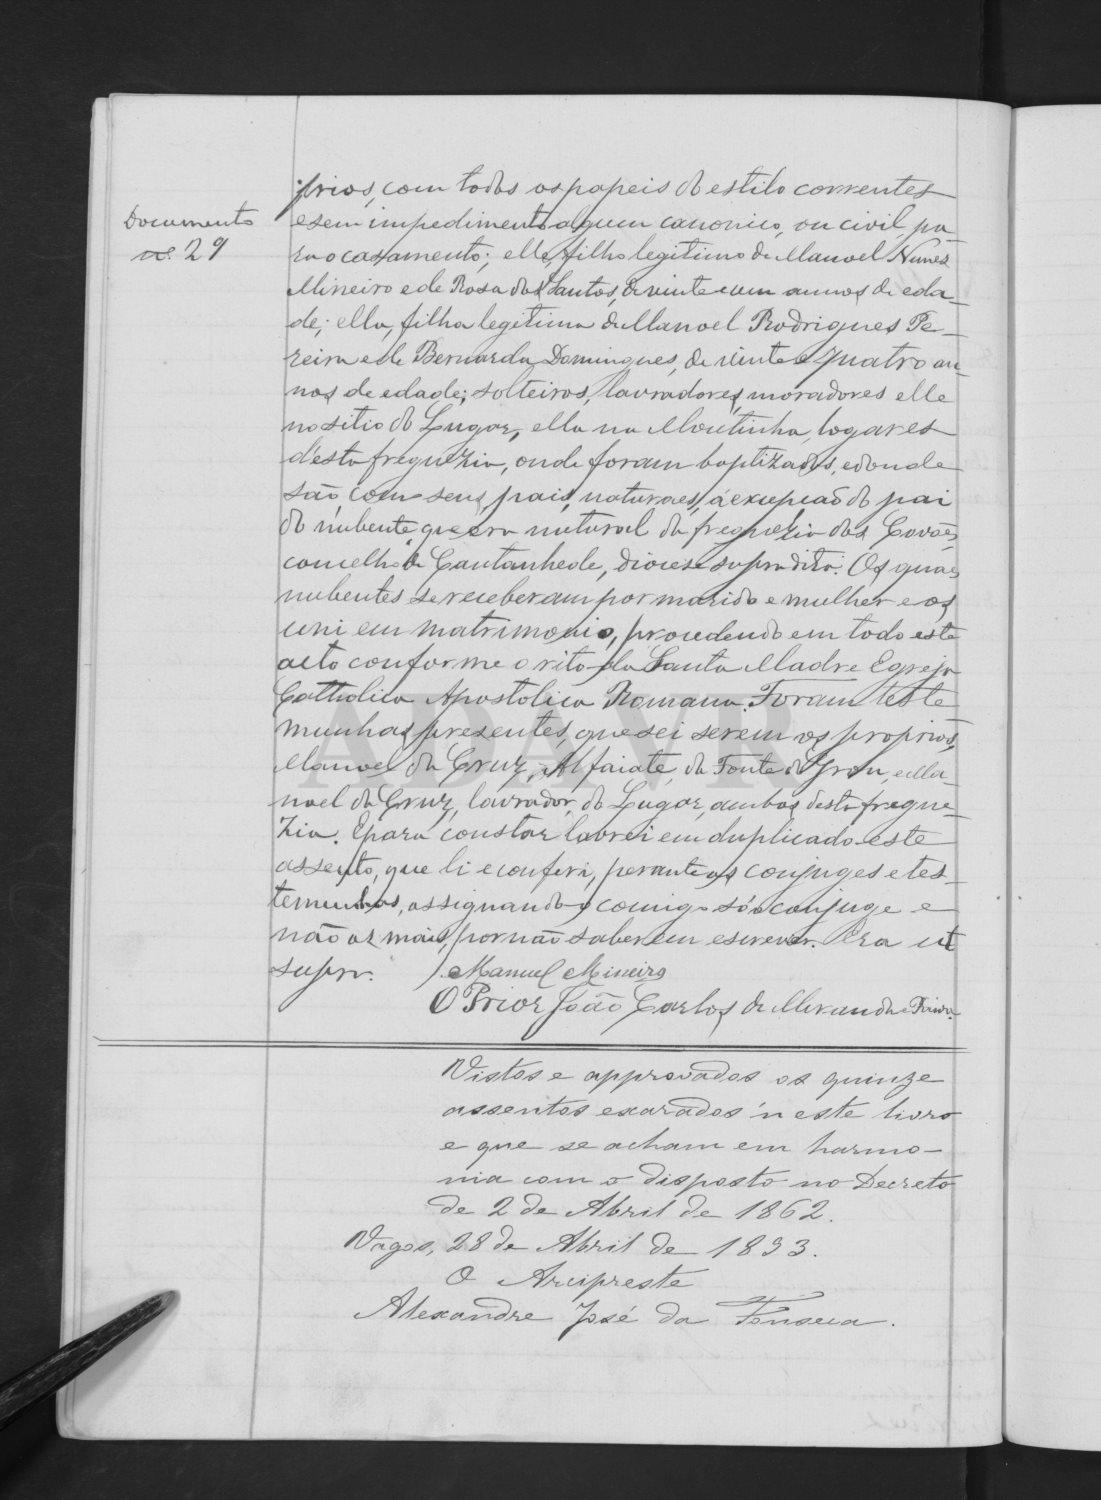 Documento
nº 29
prios, com todos os papeis do estilo correntes
e sem impedimento algum canonico, ou civil, pa-
ra o casamento; elle, filho legitimo de Manoel Nunes
Mineiro e de Rosa dos Santos, de vinte e um annos de eda-
de; ella, filha legitima de Manoel Rodrigues Pe-
reira e de Bernarda Domingues, de vinte e quatro an-
nos de edade; solteiros, lavradores, moradores elle
no sitio do Lugar, ella na Moutinha, logares
d'esta freguezia, onde foram baptizados, e donde
são, com seus pais, naturaes, á excepção do pai
do nubente, que era natural da freguezia dos Covões,
concelho de Cantanhede, diocese supra dita. Os quaes
nubentes se receberam por marido e mulher e os
uni em matrimonio, procedendo em todo este
acto conforme o rito da Santa Madre Egreja
Catholica Apostolica Romana. Foram teste
munhas presentes, que sei serem os proprios,
Manoel da Cruz, Alfaiate, da Fonte do Grou, e Ma-
noel da Cruz, lavrador, do Lugar, ambos desta fregue-
zia. E para constar lavrei em duplicado este
assento, que li e conferi, perante os conjuges e tes-
temunhas, assignando comigo só o conjuge e
não os mais, por não saberem escrever. Era ut
supra.
Manuel Mineiro
O Prior João Carlos de Miranda
Vistos e approvados os quinze
assentos exarados n'este livro
e que se acham em harmo-
nia com o disposto no Decreto
de 2 de Abril de 1862.
Vagos, 28 de Abril de 1893.
O Arcipreste
Alexandre José da Fonseca.